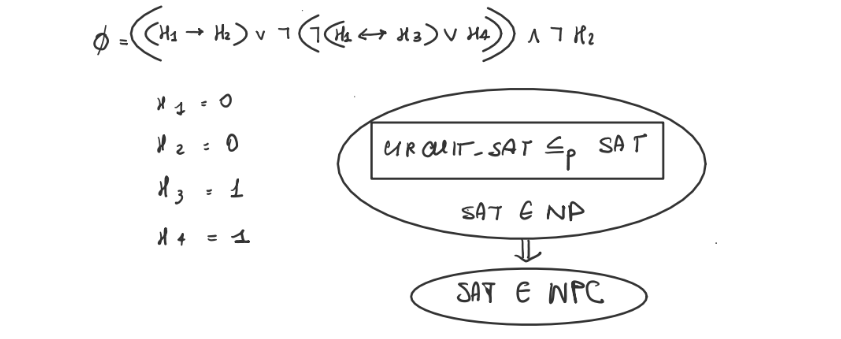 ϕ = ((x₁ → x₂) ∨ ¬(¬(x₁ ↔ x₃) ∨ x₄)) ∧ ¬x₂
x₁ = 0
x₂ = 0
x₃ = 1
x₄ = 1
CIRCUIT-SAT ≤ₚ SAT
SAT ∈ NP
⇓
SAT ∈ NPC